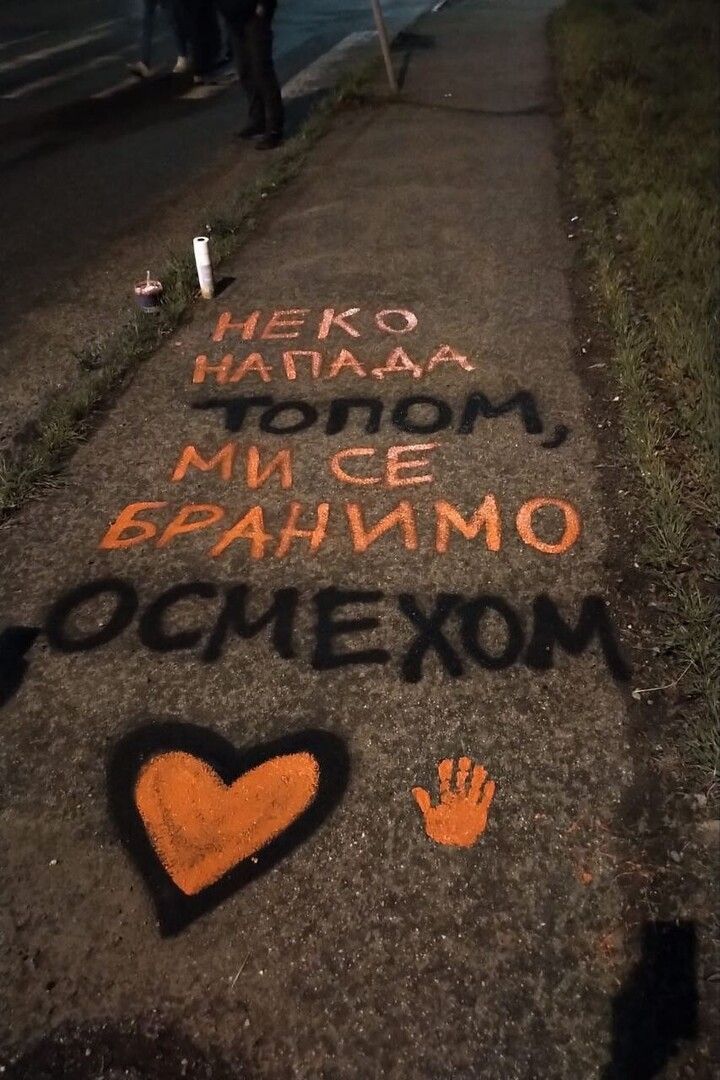 НЕКО
НАПАДА
ТОПОМ,
МИ СЕ
БРАНИМО
ОСМЕХОМ